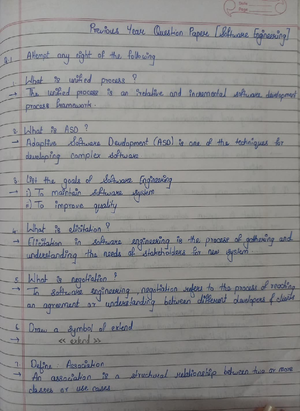 Previous Year Question Papers [Software Engineering]
Q.1 Attempt any eight of the following
1. What is unified process ?
→ The unified process is an iterative and incremental software development
process framework.
2. What is ASD ?
→ Adaptive Software Development (ASD) is one of the techniques for
developing complex software
3. List the goals of Software Engineering
→ i) To maintain software system
ii) To improve quality
4. What is elicitation ?
→ Elicitation in software engineering is the process of gathering and
understanding the needs of stakeholders for new system
5. What is negotiation ?
→ In software engineering, negotiation refers to the process of reaching
an agreement or understanding between different developers & clients
6. Draw a symbol of extend
→ << extend >>
7. Define Association
→ An association is a structural relationship between two or more
classes or use cases